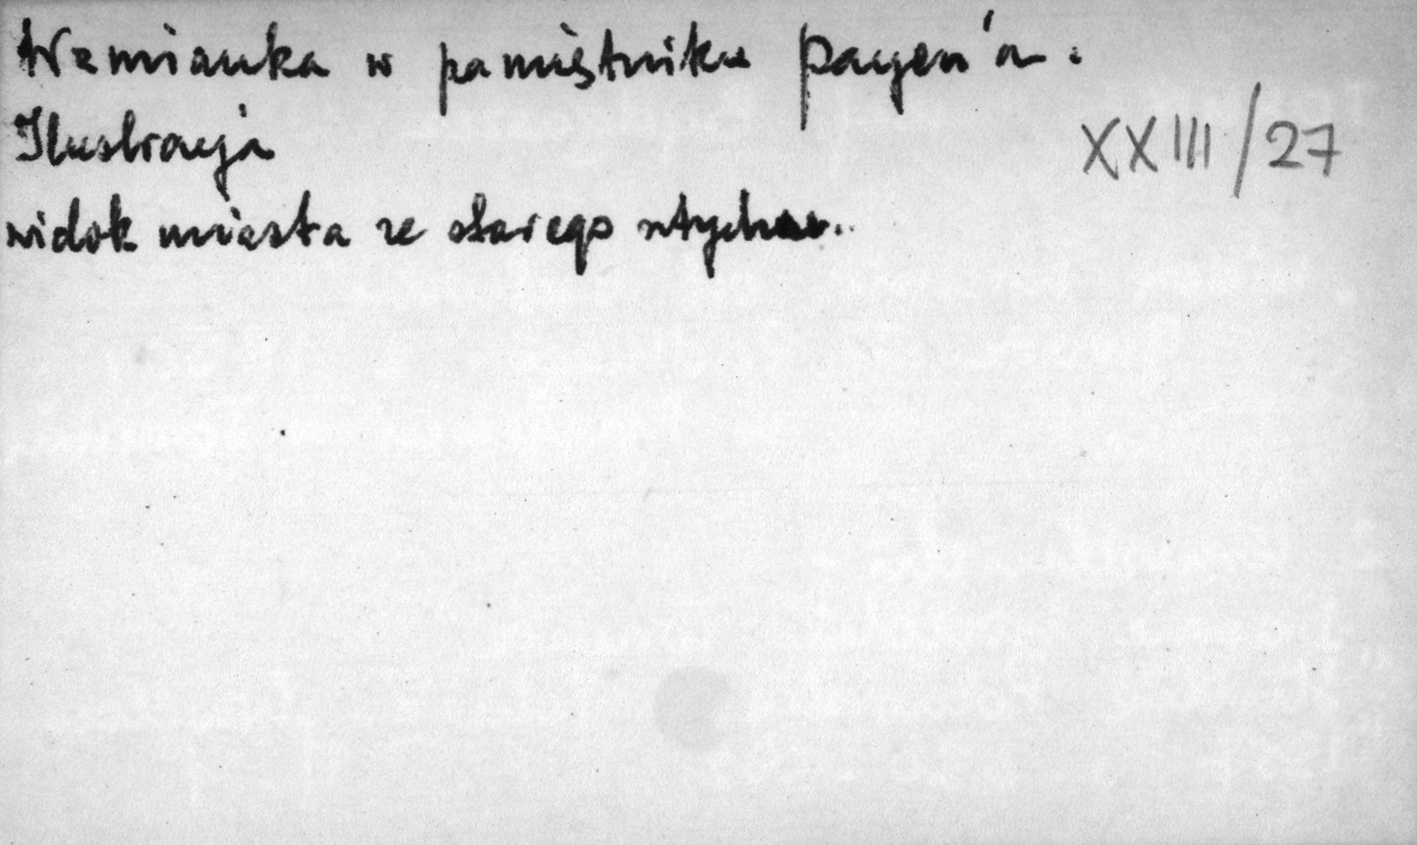 Wzmianka w pamiętniku Payen'a.
Ilustracja
XXIII/27
widok miasta ze starego sztychu.